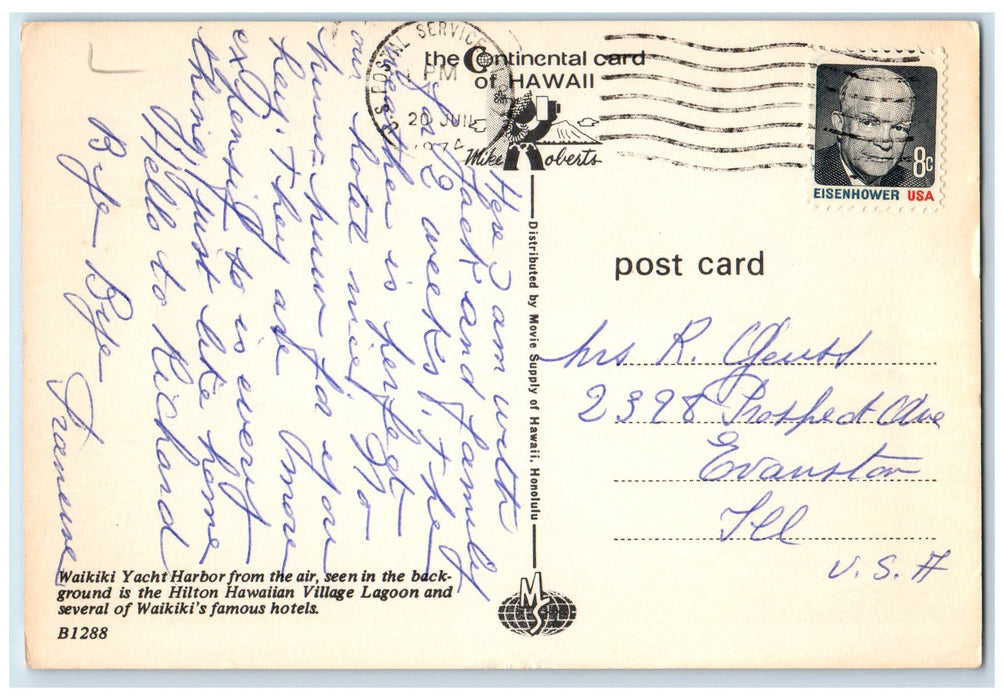 U.S. POSTAL SERVICE
PM
20 JUN
the Continental card
of HAWAII
Mike Roberts
8c
EISENHOWER USA
post card
Here I am with
Jack and family
for 2 weeks. The
weather is perfect
our hotel nice. So
hum - hum for you
Hey. They are more
expensive to is every
thing, just like home
Hello to Richard
Bye Bye
Francine
Distributed by Movie Supply of Hawaii, Honolulu
Mrs R.
2398 Prospect Ave
Evanston
Ill
U.S.A
Waikiki Yacht Harbor from the air, seen in the back-
ground is the Hilton Hawaiian Village Lagoon and
several of Waikiki's famous hotels.
B1288
MS